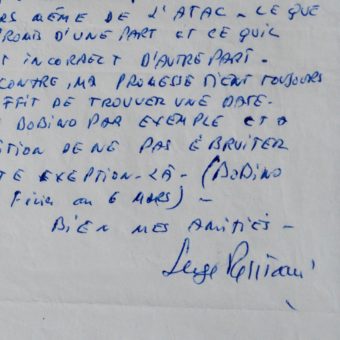 RS MÊME DE L'ATAC - CE QUE
ROMIS D'UNE PART ET CE QUIL
T INCORRECT D'AUTRE PART.
CONTRE, MA PROMESSE TIENT TOUJOURS
FFIT DE TROUVER UNE DATE.
BOBINO PAR EXEMPLE ET A
ITION DE NE PAS ÉBRUITER
TE EXEPTION-LÀ - (BOBINO
ou 6 MARS) -
BIEN MES AMITIÉS -
Serge Reggiani